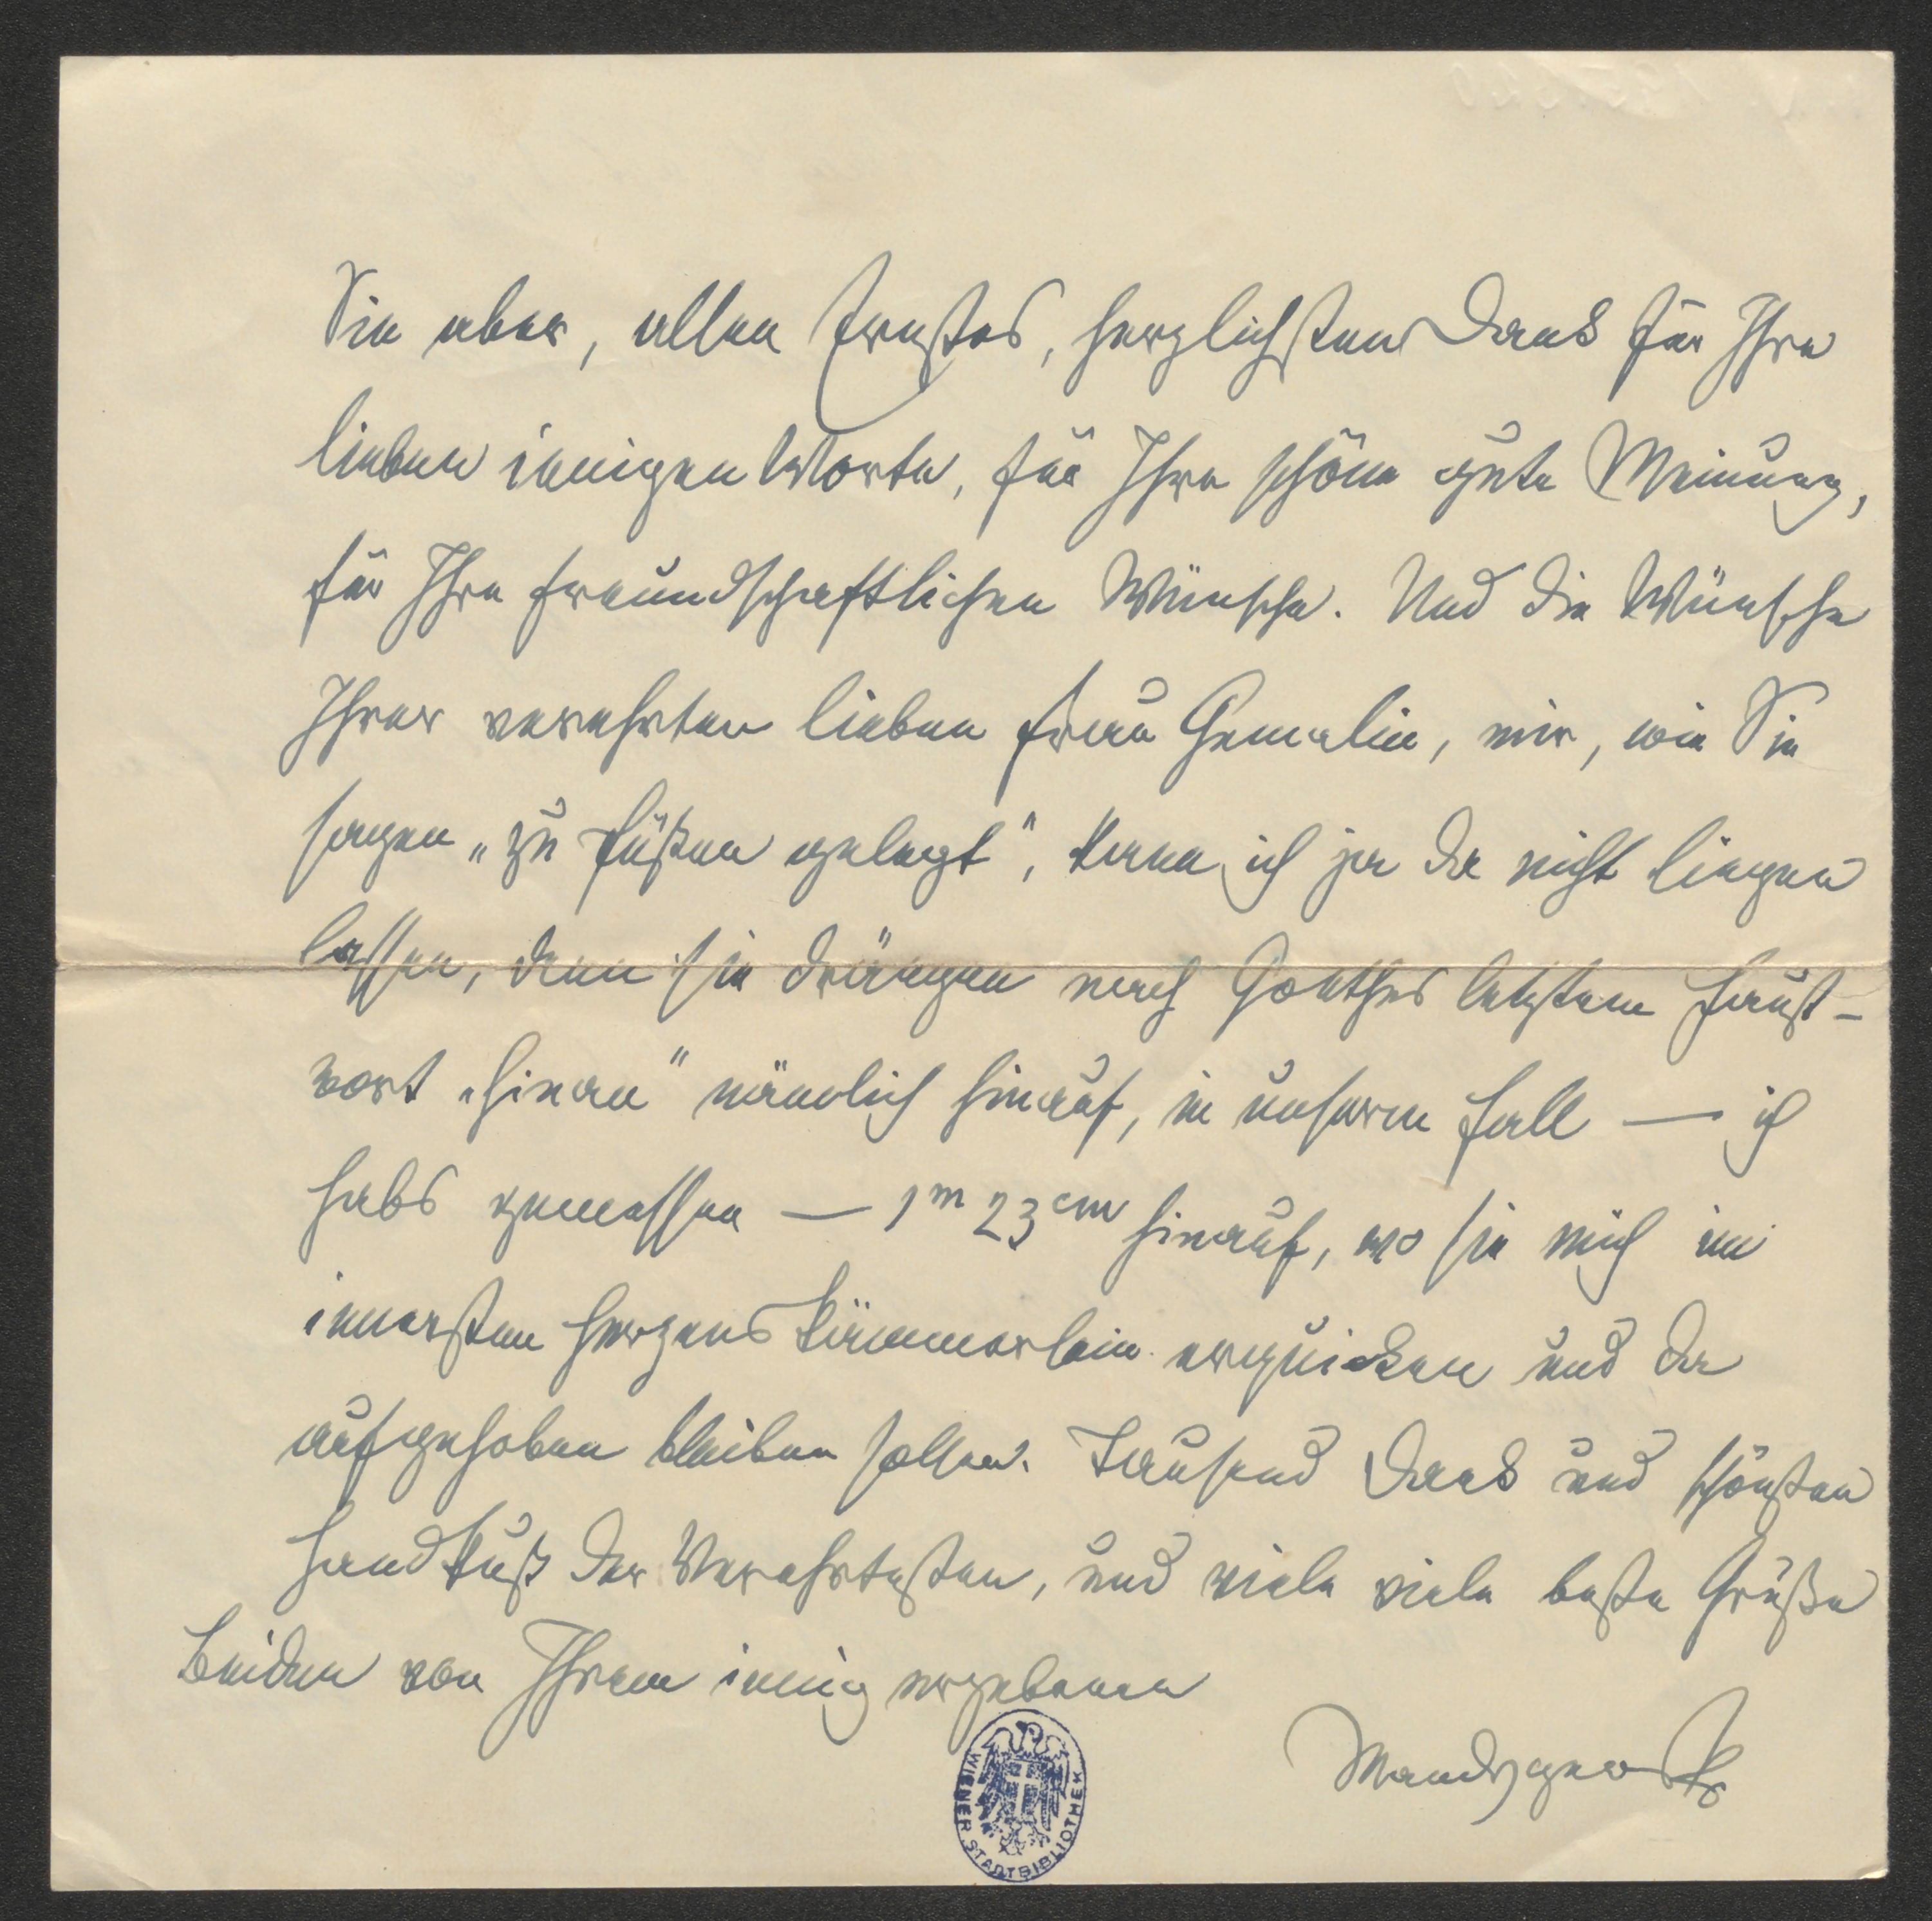 Sie aber, allen Ernstes, herzlichsten Dank für Ihre
lieben innigen Worte, für Ihre schöne gute Meinung,
für Ihre freundschaftlichen Wünsche. Und die Wünsche
Ihrer verehrten lieben Frau Gemalin, mir, wie Sie
sagen „zu Füßen gelegt“, kann ich ja da nicht liegen
lassen, denn sie drängen nach Goethes letztem Faust-
wort „hinan“ nämlich hinauf, in unserem Fall — ich
habs gemessen — 1m 23cm hinauf, wo sie mich im
innersten Herzens Kämmerlein erquicken und da
aufgehoben bleiben sollen. Tausend Dank und schönsten
Handkuß der Verehrtesten, und viele viele beste Grüße
Beiden von Ihrem innig ergebenen
Mandyczewski
WIENER STADTBIBLIOTHEK